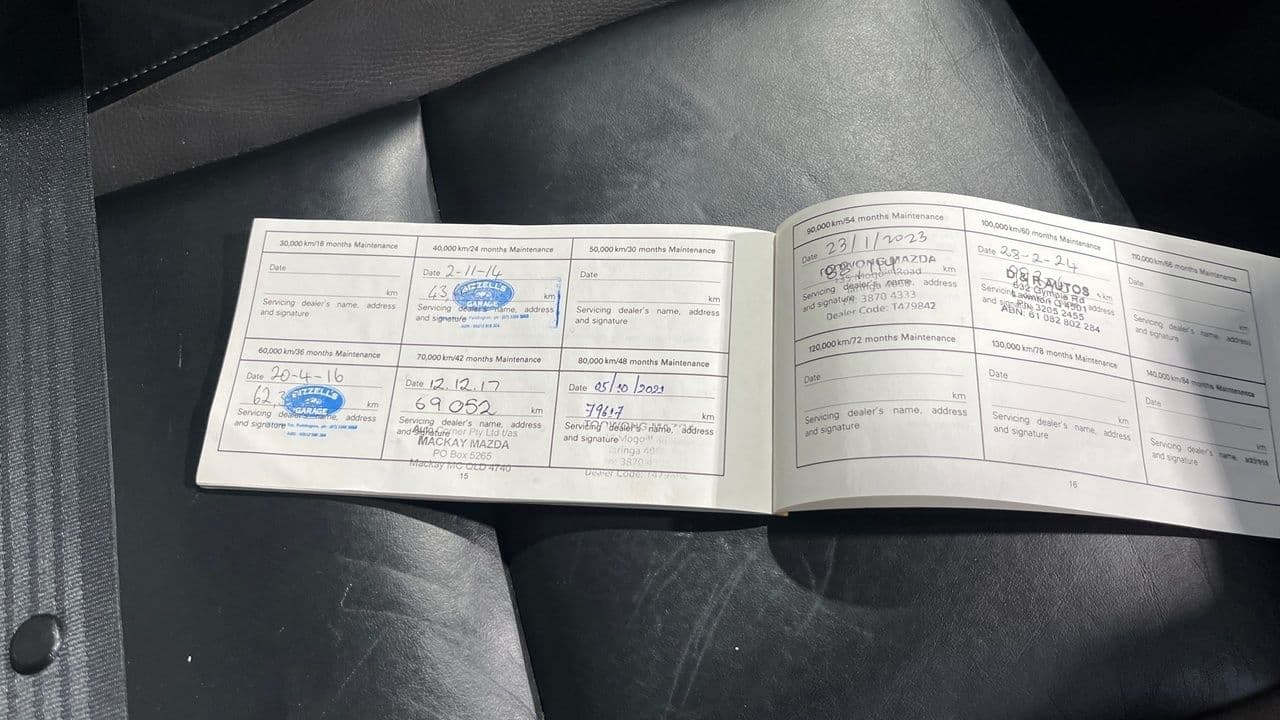 30,000 km/18 months Maintenance
Date
km
Servicing dealer's name, address
and signature
40,000 km/24 months Maintenance
Date 2-11-14
43 km
BIZZELL'S
GARAGE
Servicing dealer's name, address
and signature
50,000 km/30 months Maintenance
Date
km
Servicing dealer's name, address
and signature
60,000 km/36 months Maintenance
Date 20-4-16
62 km
BIZZELL'S
GARAGE
Servicing dealer's name, address
and signature
70,000 km/42 months Maintenance
Date 12.12.17
69052 km
Servicing dealer's name, address
and signature
Pty Ltd t/as
MACKAY MAZDA
PO Box 5265
Mackay MC QLD 4740
80,000 km/48 months Maintenance
Date 05/10/2021
km
Servicing dealer's name, address
and signature
Dealer Code:
15
90,000 km/54 months Maintenance
Date 23/1/2023
MAZDA
km
Road
Servicing dealer's name, address
and signature 3870 4333
Dealer Code: 1479842
100,000 km/60 months Maintenance
Date 28-2-24
km
D & R AUTOS
632 Gympie Rd
Lawnton QLD 4501
Ph: 3205 2455
ABN: 61 082 802 284
Servicing dealer's name, address
and signature
110,000 km/66 months Maintenance
Date
km
Servicing dealer's name, address
and signature
120,000 km/72 months Maintenance
Date
km
Servicing dealer's name, address
and signature
130,000 km/78 months Maintenance
Date
km
Servicing dealer's name, address
and signature
140,000 km/84 months Maintenance
Date
km
Servicing dealer's name, address
and signature
16